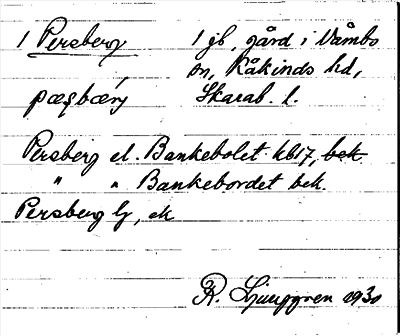 1 Persberg 1 jb, gård i Våmbs
sn, Kåkinds hd,
Skarab. l.
pæṣbærj
Persberg el. Bankebolet kb17, bek
" " Bankebordet bek.
Persberg lj, ek
R. Ljunggren 1930